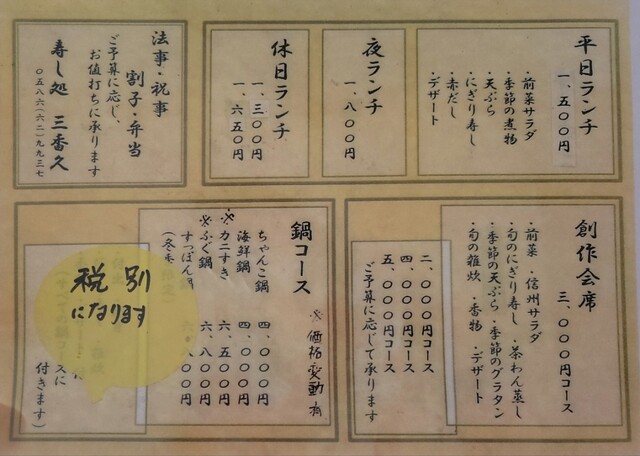 平日ランチ
一、五〇〇円
・前菜サラダ
・季節の煮物
・天ぷら
・にぎり寿し
・赤だし
・デザート
夜ランチ
一、八〇〇円
休日ランチ
一、三〇〇円
一、六五〇円
法事・祝事
割子・弁当
ご予算に応じ、
お値打ちに承ります
寿し処 三香久
〇五八六(六二)九九三七
創作会席
三、〇〇〇円コース
・前菜 ・信州サラダ
・旬のにぎり寿し ・茶わん蒸し
・季節の天ぷら ・季節のグラタン
・旬の雑炊 ・香物 ・デザート
二、〇〇〇円コース
四、〇〇〇円コース
五、〇〇〇円コース
ご予算に応じて承ります
鍋コース
※価格変動有
ちゃんこ鍋 四、〇〇〇円
海鮮鍋 四、〇〇〇円
※カニすき 六、五〇〇円
※ふぐ鍋 六、八〇〇円
すっぽん 〇〇円
(冬季
スに
付きます)
税別
になります